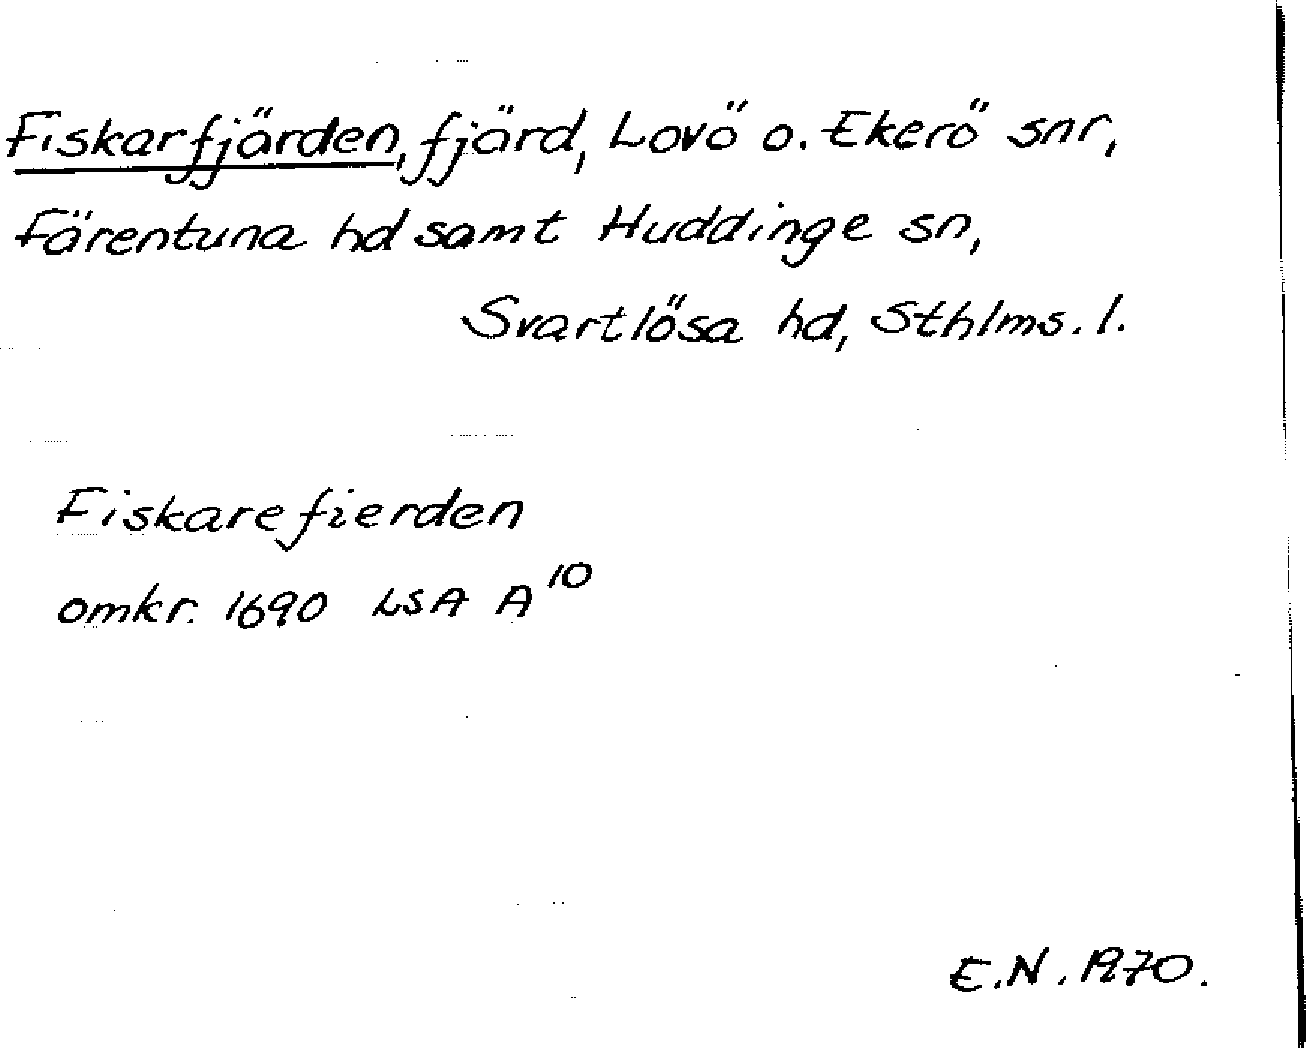 Fiskarfjärden, fjärd, Lovö o. Ekerö snr,
Färentuna hd samt Huddinge sn,
Svartlösa hd, Sthlms. l.
Fiskarefierden
omkr. 1690 LSA A¹⁰
E.N. 1970.